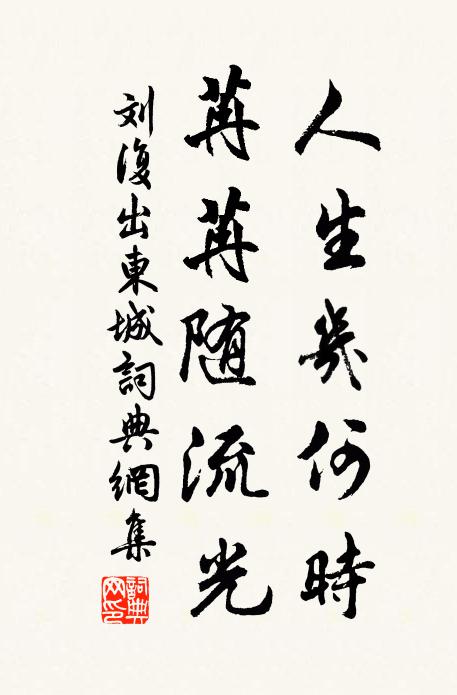 人生幾何時
苒苒随流光
刘復出東城詞典網集
詞典网印